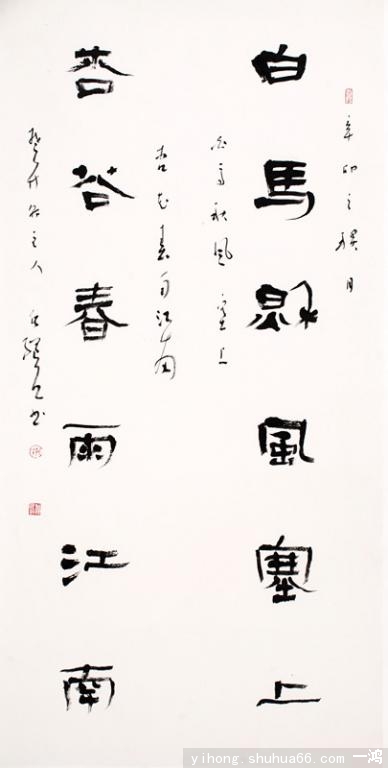 辛卯之禊月
白馬龝風塞上
白馬秋風塞上
杏花春雨江南
杏花春雨江南
主人 书
yihong.shuhua66.com 一鸿